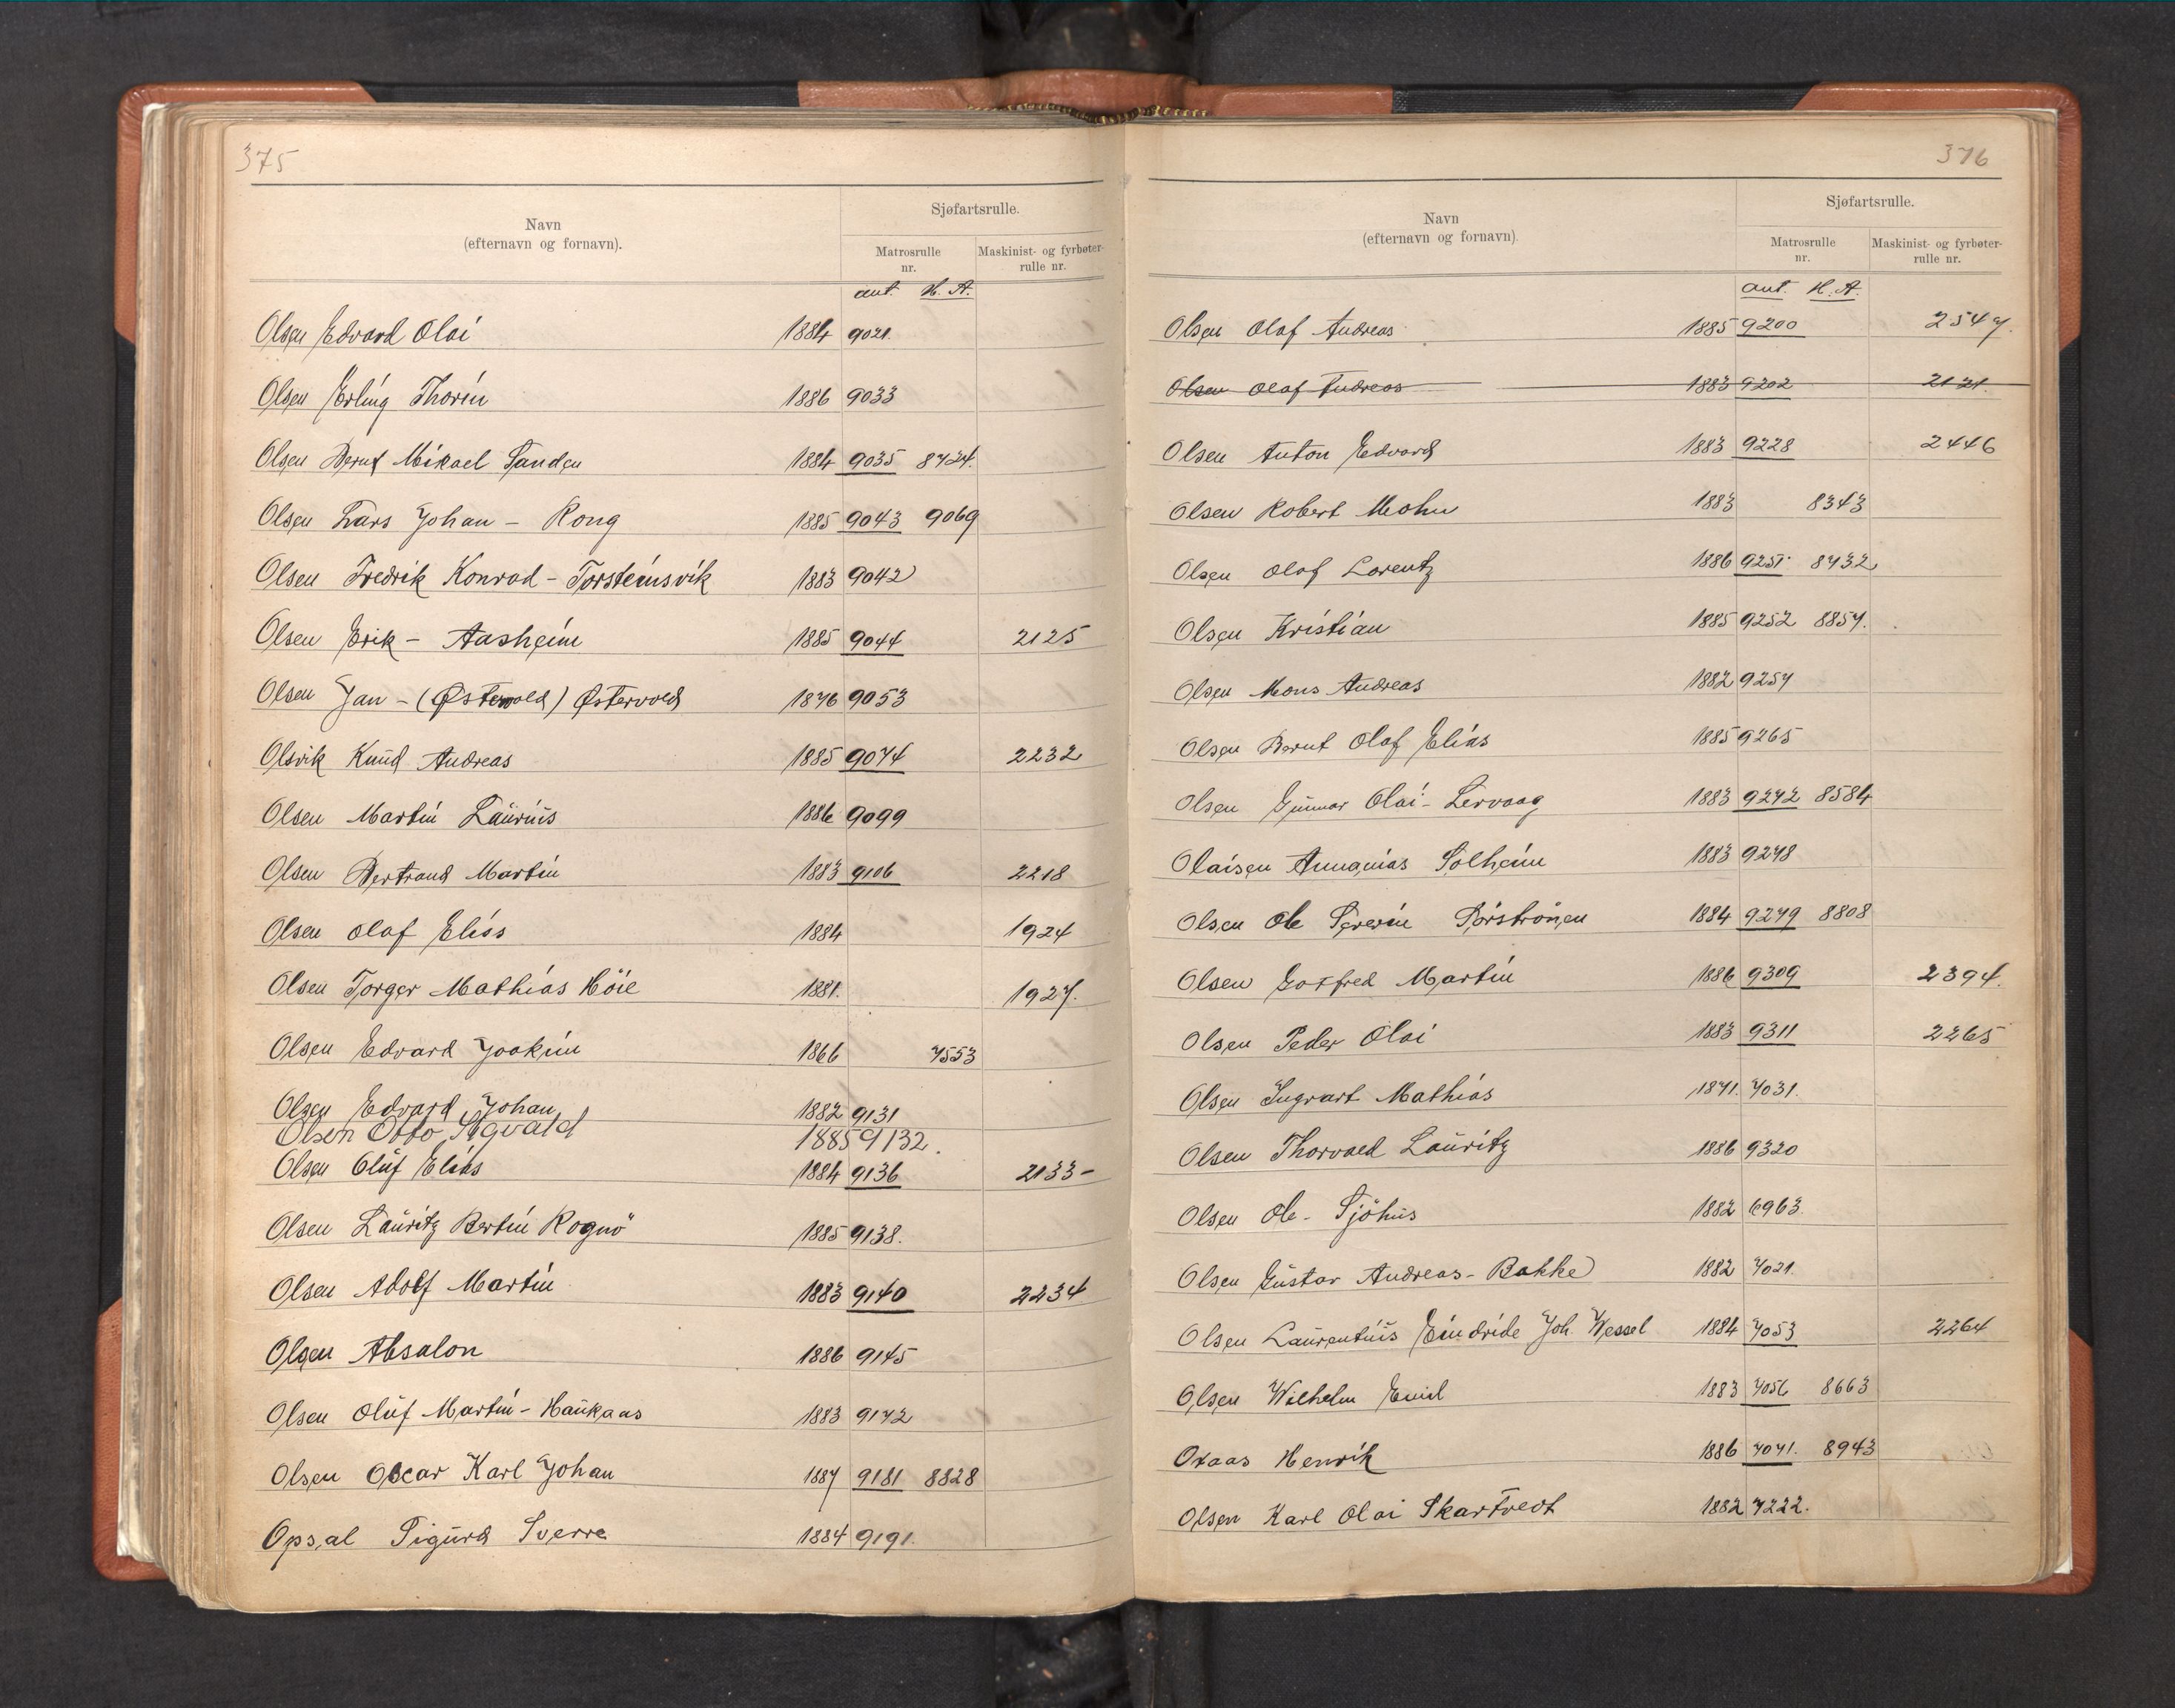 375
Navn
(efternavn og fornavn).
Sjøfartsrulle.
Matrosrulle nr.
Maskinist- og fyrbøter-rulle nr.
ant. H. A.
Olsen Edvard Olai 1884 9021.
Olsen Erling Thorin 1886 9033
Olsen Bernt Mikael Sanden 1884 9035 8724.
Olsen Lars Johan - Rong 1885 9043 9069
Olsen Fredrik Konrad - Torsteinsvik 1883 9042
Olsen Erik - Aasheim 1885 9044 2125
Olsen Jan - (Østervold) Østervold 1876 9053
Olsvik Knud Andreas 1885 9074 2232
Olsen Martin Laurius 1886 9099
Olsen Bertrand Martin 1883 9106 2218
Olsen Olaf Elias 1884 1924
Olsen Torger Mathias Höie 1881. 1927.
Olsen Edvard Joakim 1866 7553
Olsen Edvard Johan 1882 9131
Olsen Otto Sigvald 1885 9132.
Olsen Oluf Elias 1884 9136 2133-
Olsen Lauritz Bertin Rognö 1885 9138.
Olsen Adolf Martin 1883 9140 2234
Olsen Absalon 1886 9145
Olsen Oluf Martin - Haukaas 1883 9172
Olsen Oscar Karl Johan 1887 9181 8828
Opsal Sigurd Sverre 1884 9191.
376
Navn
(efternavn og fornavn).
Sjøfartsrulle.
Matrosrulle nr.
Maskinist- og fyrbøter-rulle nr.
ant. H. A.
Olsen Olaf Andreas 1885 9200 2547.
Olsen Olaf Andreas 1883 9202 2121.
Olsen Anton Edvard 1883 9228 2446
Olsen Robert Mohn 1883 8343
Olsen Olaf Lorentz 1886 9251. 8732
Olsen Kristian 1885 9252 8857.
Olsen Mons Andreas 1882 9257
Olsen Bernt Olaf Elias 1885 9265
Olsen Gunnar Olai - Lervaag 1883 9272 8584
Olaisen Annanias Solheim 1883 9278
Olsen Ole Severin Sörströnen 1884 9279 8808
Olsen Gotfred Martin 1886 9309 2394.
Olsen Peder Olai 1883 9311 2265
Olsen Ingvart Mathias 1871. 7031.
Olsen Thorvald Lauritz 1886 9320
Olsen Ole - Sjöhus 1882 6963
Olsen Gustav Andreas - Bakke 1882 7021.
Olsen Laurentius Eindride Joh. Wessel 1884 7053 2264
Olsen Wilhelm Emil 1883 7056 8663
Oxaas Henrik 1886 7071. 8943
Olsen Karl Olai Skartvedt 1882 7222.